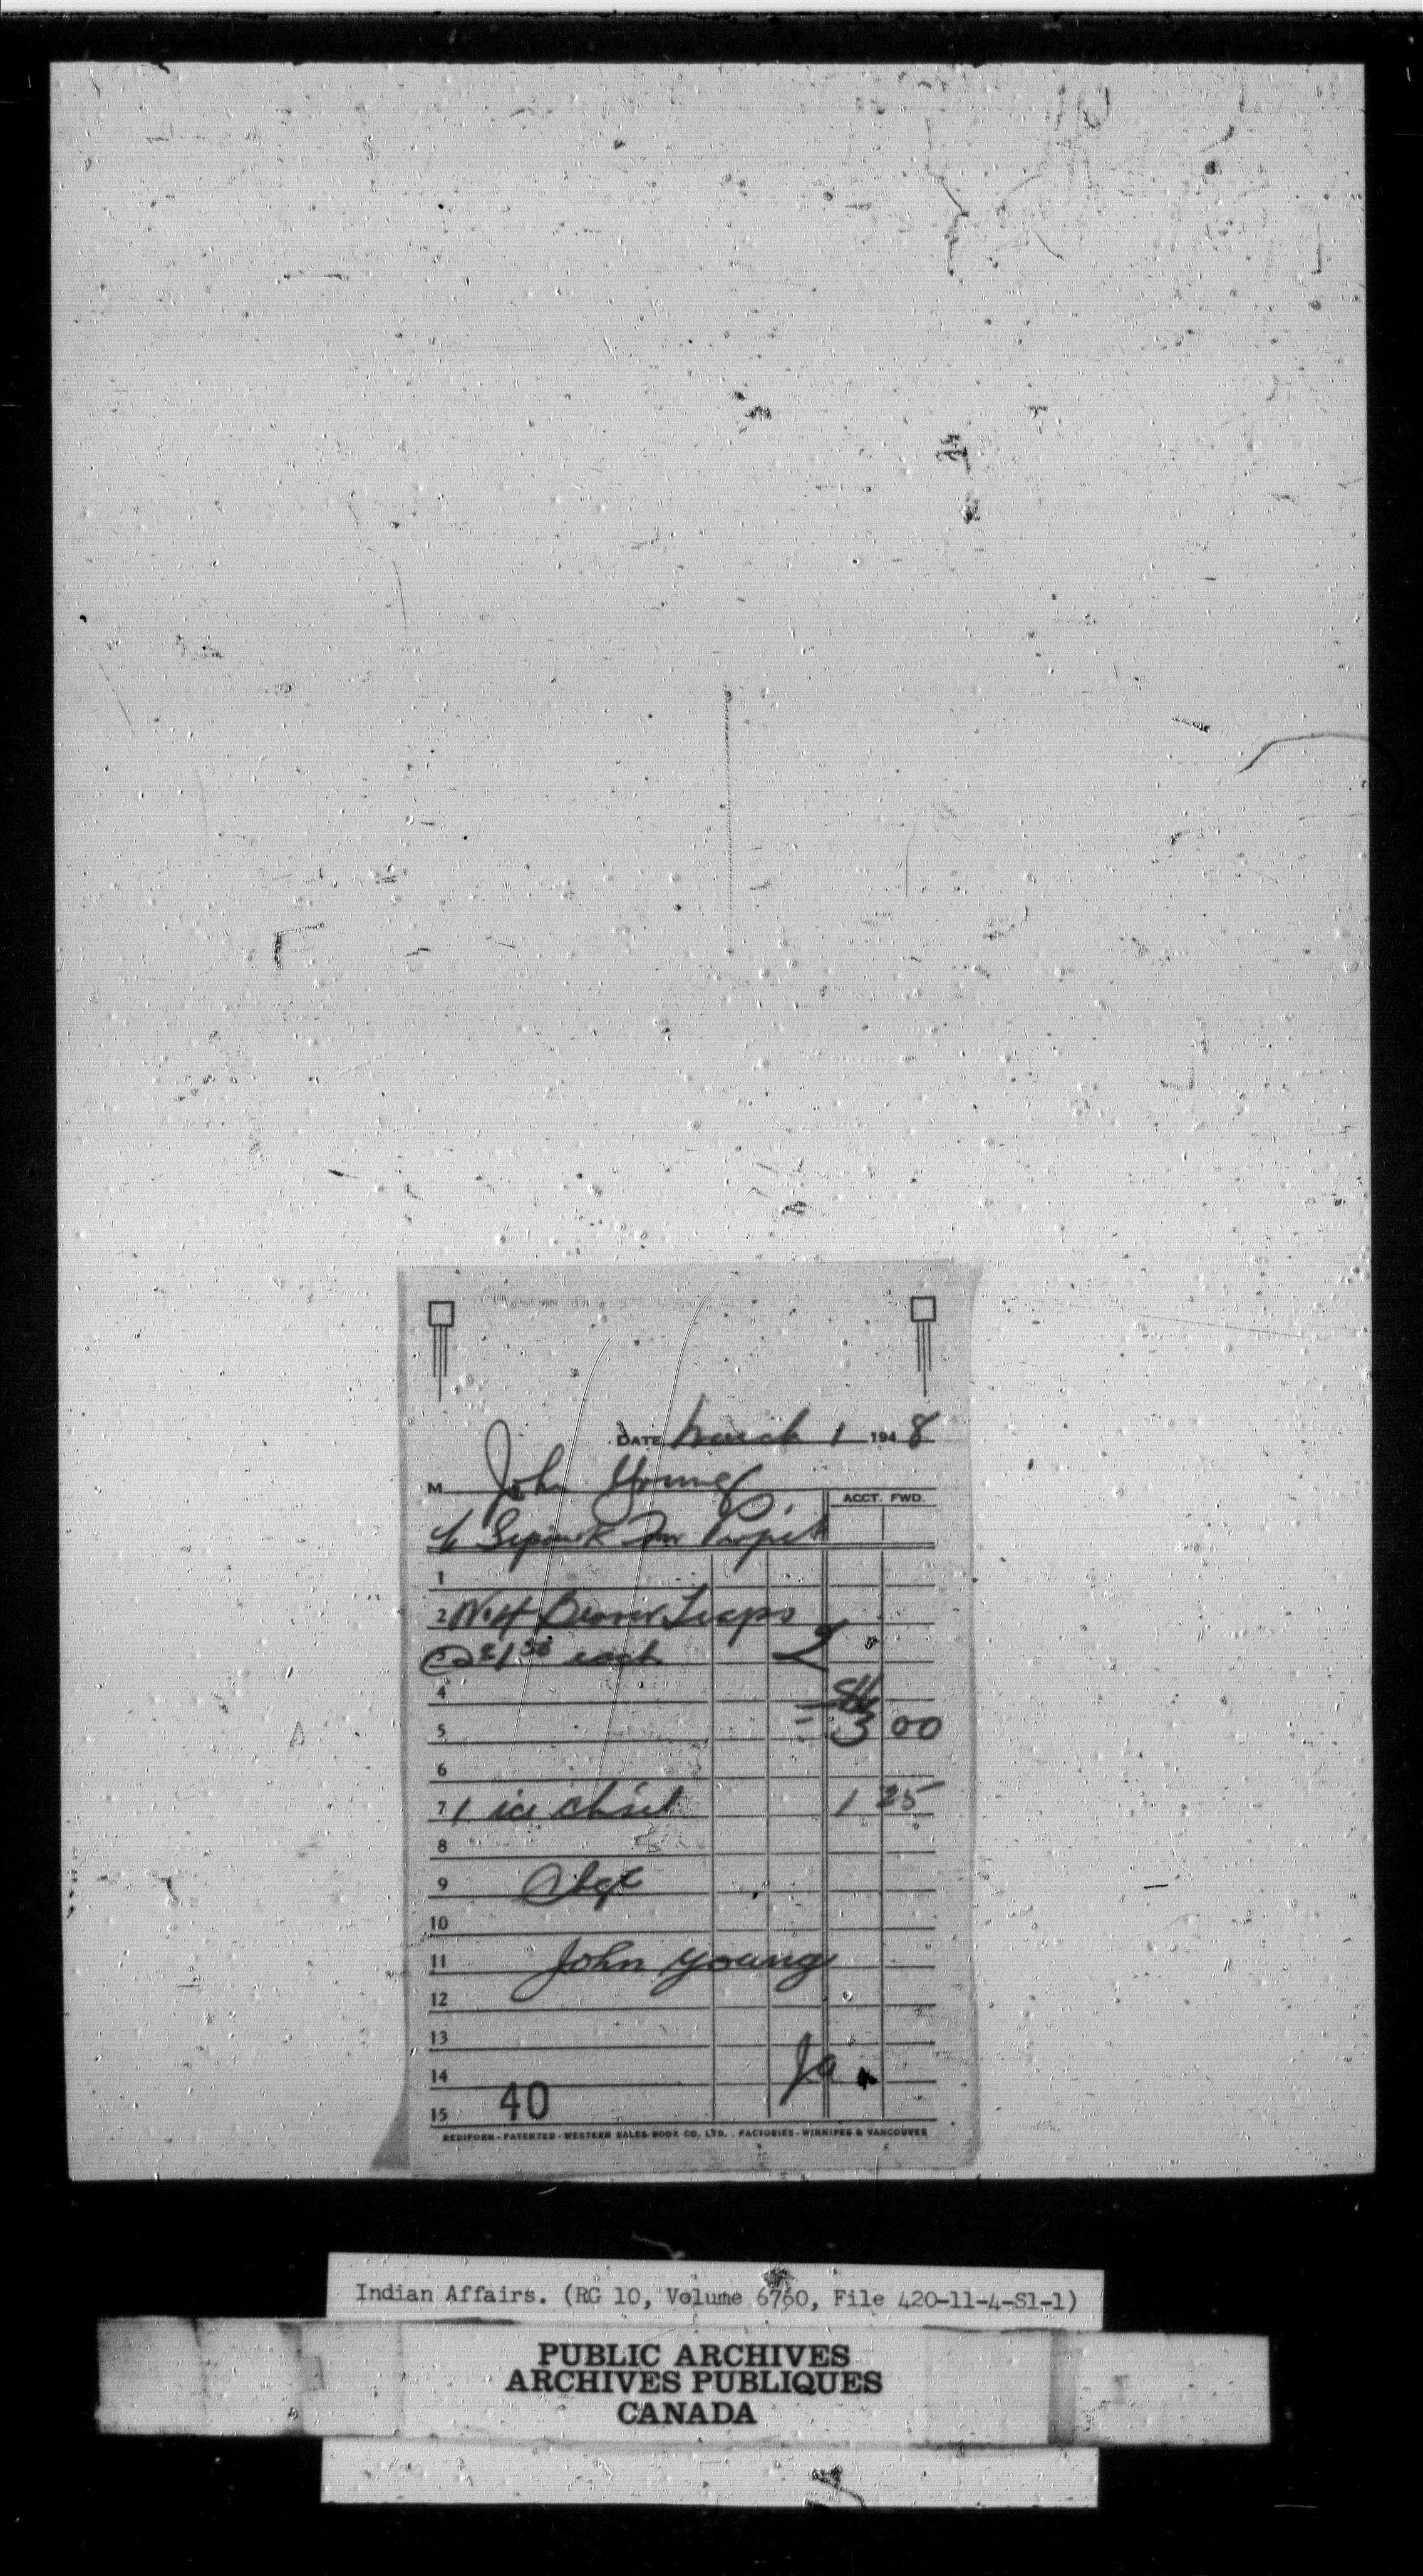 DATE March 1 1948
M John Young
ACCT. FWD.
% Sipiwesk Fur Project
1
2 No 4 Beaver Traps
3 @ $1 50 each 2
4
5 = 3 00
6
7 1 ice chisel 1 25
8
9 Chge
10
11 John Young
12
13
14
15 40
REDIFORM - PATENTED - WESTERN SALES BOOK CO. LTD. . FACTORIES - WINNIPEG & VANCOUVER
Indian Affairs. (RG 10, Volume 6760, File 420-11-4-S1-1)
PUBLIC ARCHIVES
ARCHIVES PUBLIQUES
CANADA